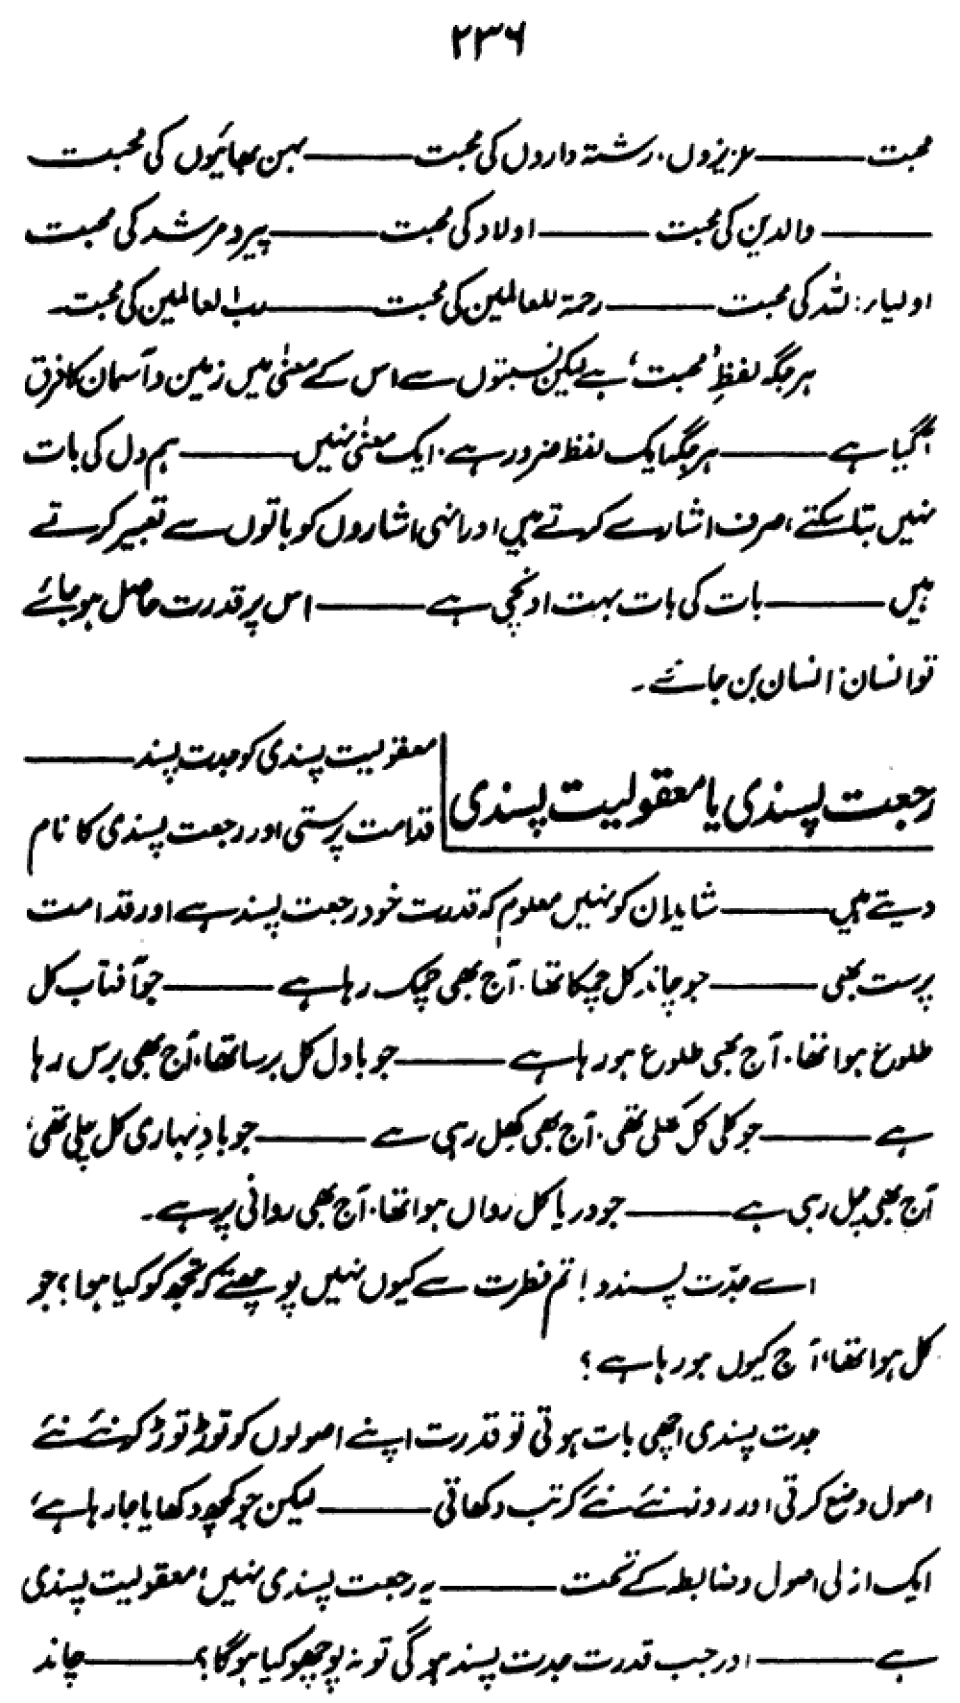 ۲۳۶
محبت ——— عزیزوں، رشتہ داروں کی محبت ——— بہن بھائیوں کی محبت
——— والدین کی محبت ——— اولاد کی محبت ——— پیر و مرشد کی محبت
اولیاء اللہ کی محبت ——— رحمۃ للعالمین کی محبت ——— رب العالمین کی محبت۔
ہر جگہ لفظِ ’محبت‘ ہے لیکن نسبتوں سے اس کے معنیٰ میں زمین و آسمان کا فرق
آگیا ہے ——— ہر جگہ ایک لفظ ضرور ہے، ایک معنیٰ نہیں ——— ہم دل کی بات
نہیں بتا سکتے، صرف اشارے کرتے ہیں اور انہی اشاروں کو باتوں سے تعبیر کرتے
ہیں ——— بات کی بات بہت اونچی ہے ——— اس پر قدرت حاصل ہو جائے
تو انسان، انسان بن جائے۔
رجعت پسندی یا معقولیت پسندی
معقولیت پسندی کو جدت پسند ———
قدامت پرستی اور رجعت پسندی کا نام
دیتے ہیں ——— شاید ان کو نہیں معلوم کہ قدرت خود رجعت پسند ہے اور قدامت
پرست بھی ——— جو چاند کل چمکا تھا، آج بھی چمک رہا ہے ——— جو آفتاب کل
طلوع ہوا تھا، آج بھی طلوع ہو رہا ہے ——— جو بادل کل برسا تھا، آج بھی برس رہا
ہے ——— جو کلی کل کھلی تھی، آج بھی کھل رہی ہے ——— جو بادِ بہاری کل چلی تھی،
آج بھی چل رہی ہے ——— جو دریا کل رواں ہوا تھا، آج بھی روانی پر ہے۔
اے جدّت پسندو! تم فطرت سے کیوں نہیں پوچھتے کہ تجھ کو کیا ہوا؟ جو
کل ہوا تھا، آج کیوں ہو رہا ہے؟
جدت پسندی اچھی بات ہوتی تو قدرت اپنے اصولوں کو توڑ توڑ کر نئے نئے
اصول وضع کرتی اور روز نئے نئے کرتب دکھاتی ——— لیکن جو کچھ دکھایا جا رہا ہے،
ایک ازلی اصول و ضابطہ کے تحت ——— یہ رجعت پسندی نہیں، معقولیت پسندی
ہے ——— اور جب قدرت جدت پسند ہو گی تو نہ پوچھو کیا ہوگا؟ ——— چاند